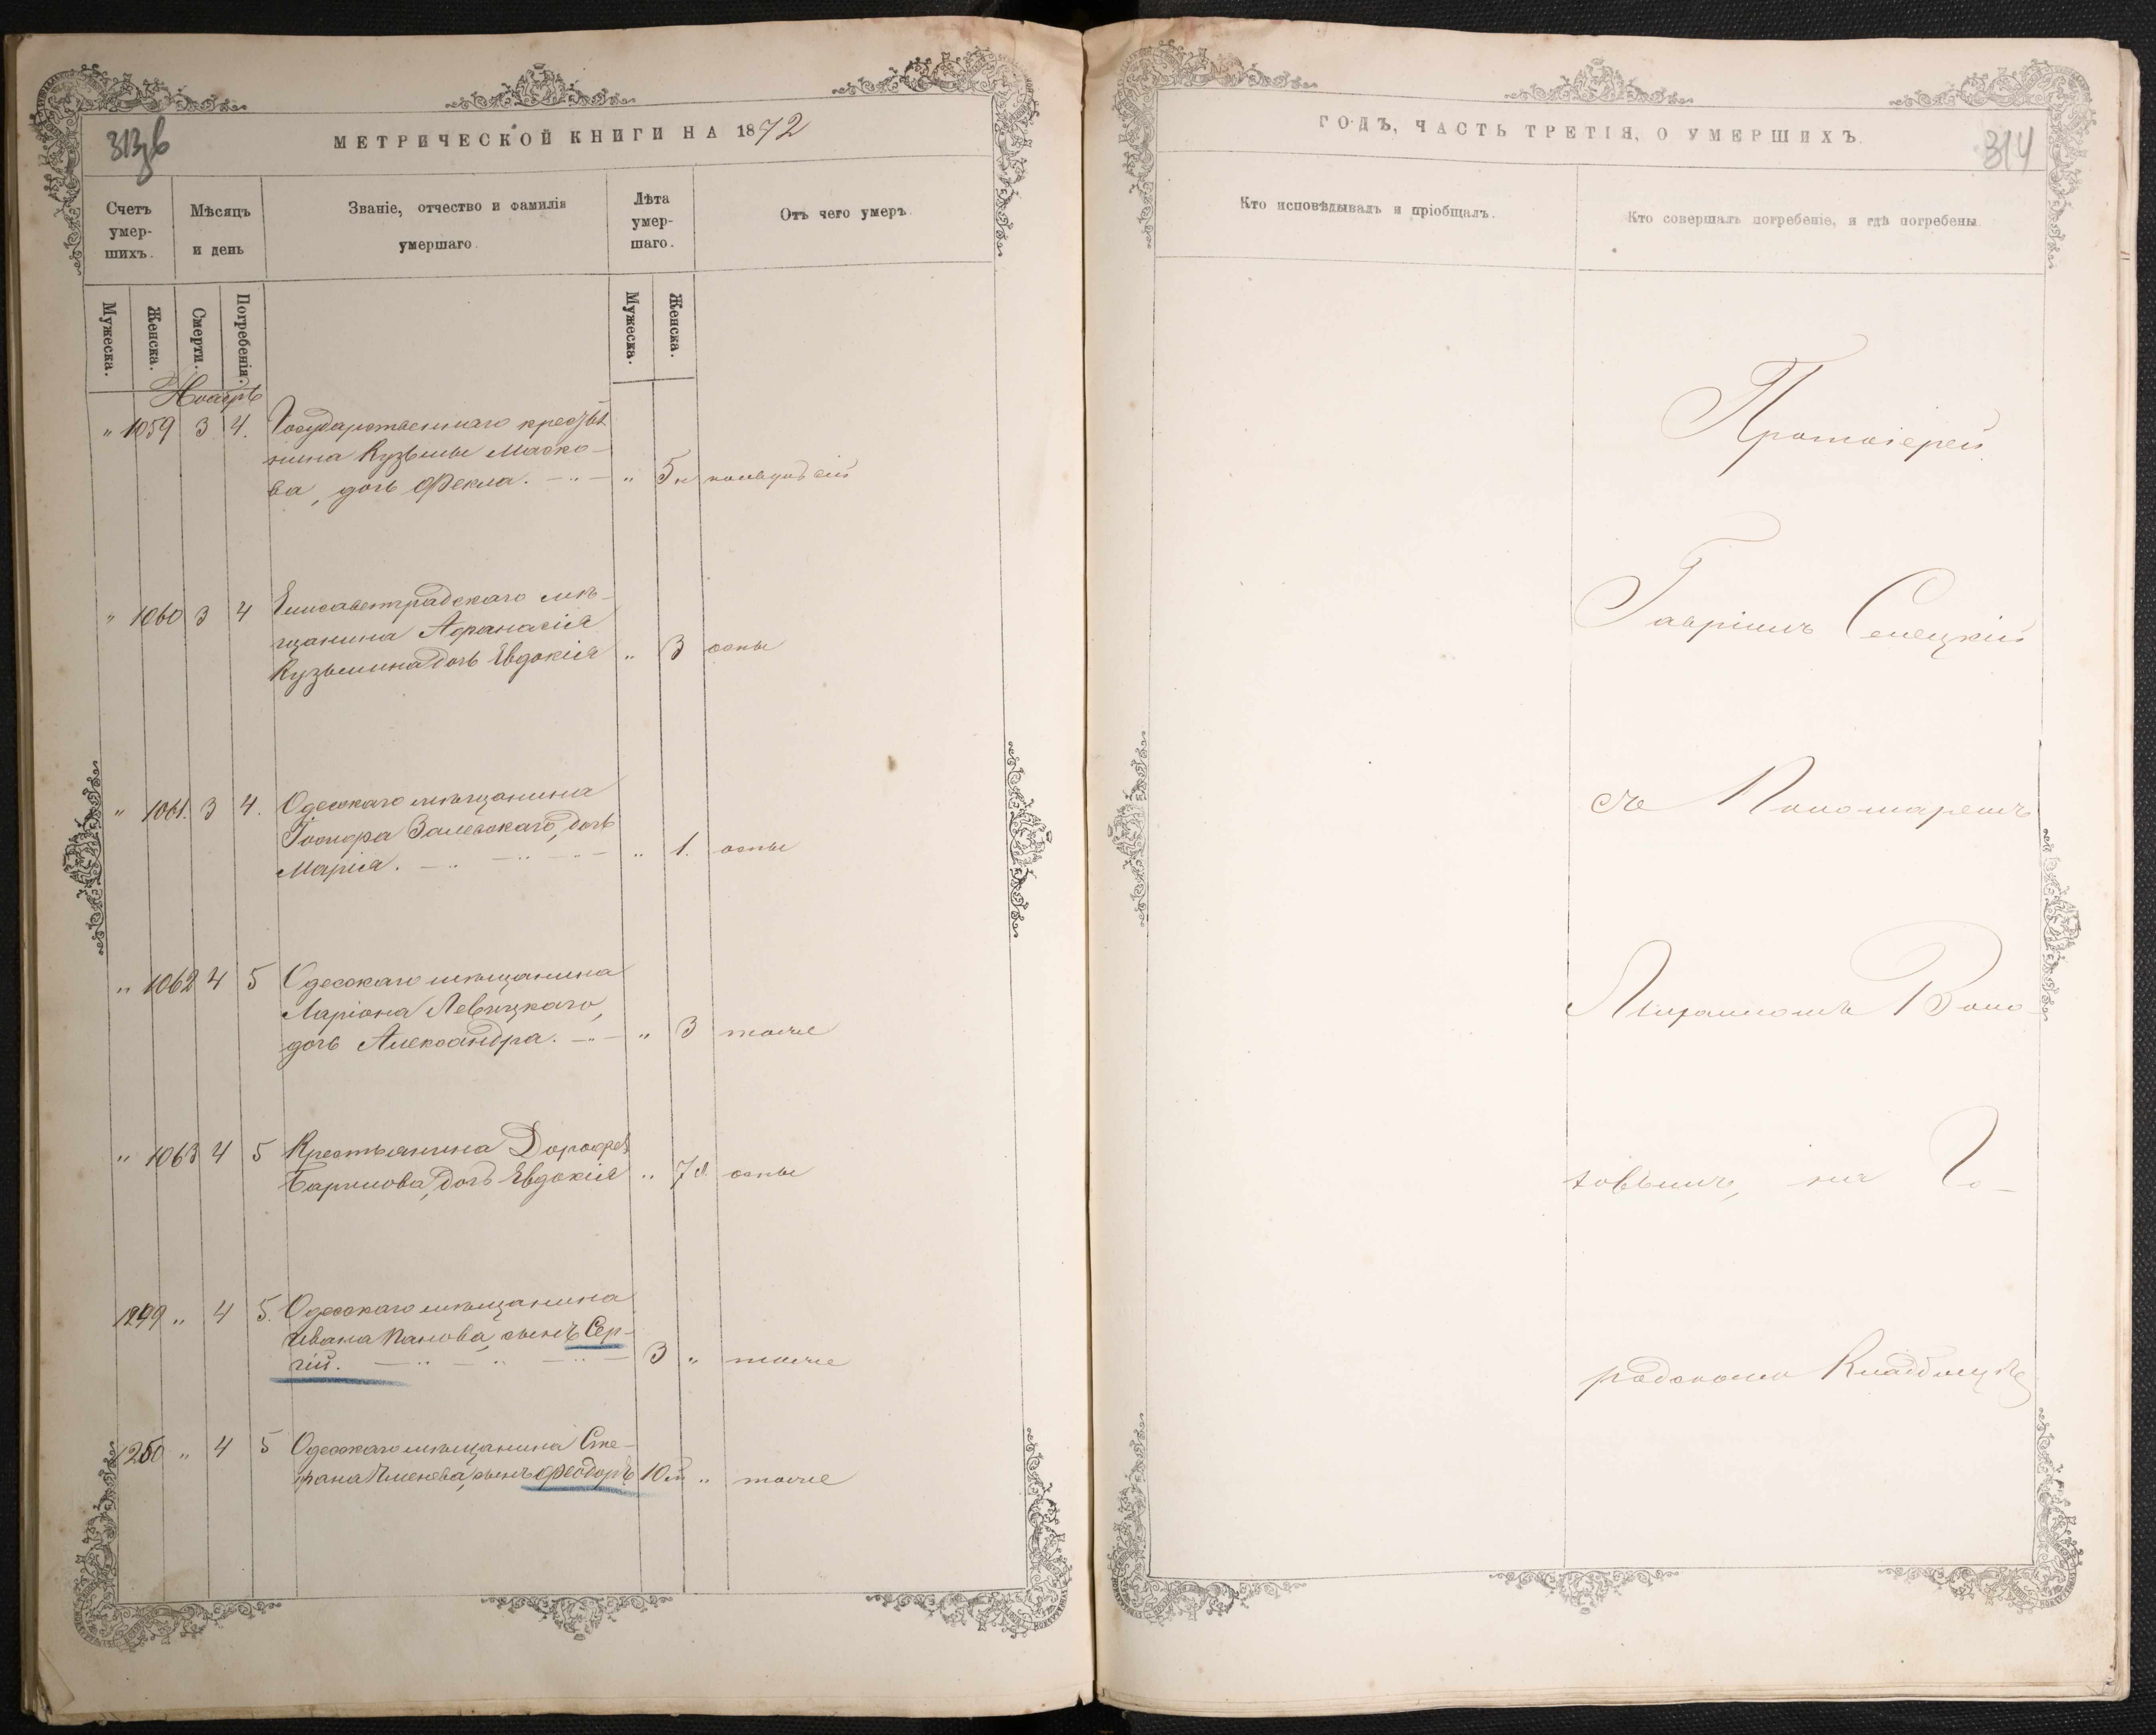 313об
МЕТРИЧЕСКОЙ КНИГИ НА 1872
Счетъ умер-шихъ.
Мѣсяцъ и день
Званіе, отчество и фамилія умершаго.
Лѣта умер-шаго.
Отъ чего умеръ.
Мужеска.
Женска.
Смерти.
Погребенія.
Мужеска.
Женска.
Ноябрь
" 1059 3 4. Государственнаго крестья
нина Кузьмы
ва, дочь Фекла. " 5
" 1060 3 4 Елисаветградскаго мѣ-
щанина Афанасія
Кузьмина дочь Евдокія " 3 оспы
" 1061. 3 4. Одесскаго мѣщанина
Залевскаго, дочь
Марія. " 1. оспы
" 1062 4 5 Одесскаго мѣщанина
Ларіона Левицкаго,
дочь Александра. " 3 тоже
" 1063 4 5 Крестьянина Дорофея
дочь Евдокія " 7 оспы
1249 " 4 5. Одесскаго мѣщанина
Ивана Панова, сынъ Сер-
гій. 3 " тоже
1250 " 4 5 Одесскаго мѣщанина Сте-
фана сынъ Феодоръ 10 " тоже
ГОДЪ, ЧАСТЬ ТРЕТІЯ, О УМЕРШИХЪ.
314
Кто исповѣдывалъ и пріобщалъ.
Кто совершалъ погребеніе, и гдѣ погребены.
Протоіерей
Гавріилъ Селецкій
съ Пономаремъ
товымъ, на Го-
родскомъ Кладбищѣ